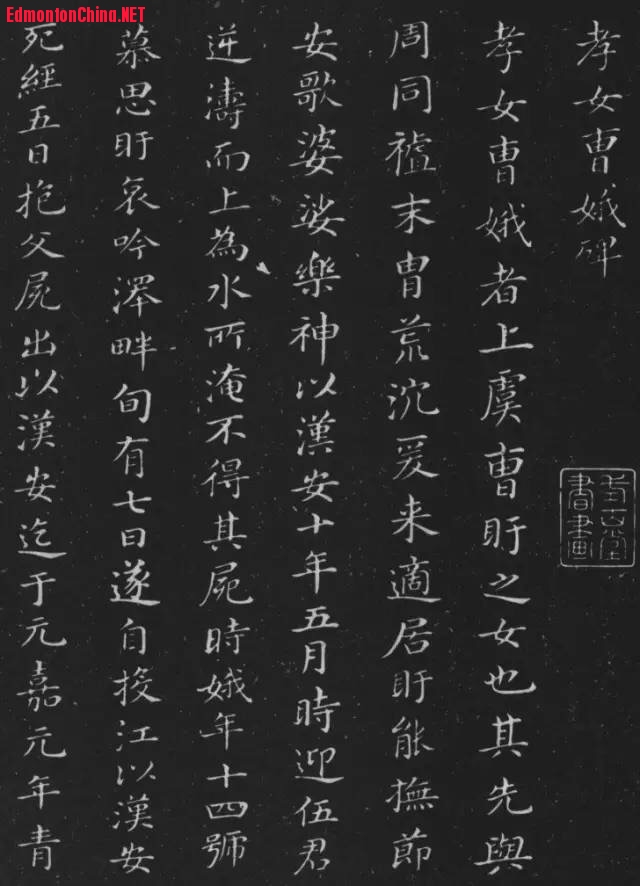 EdmontonChina.NET
孝女曹娥碑
孝女曹娥者上虞曹盱之女也其先與
周同祖末胄荒沉爰来適居盱能撫節
安歌婆娑樂神以漢安十年五月時迎伍君
逆濤而上為水所淹不得其屍時娥年十四號
慕思盱哀吟澤畔旬有七日遂自投江以漢安
死經五日抱父屍出以漢安迄于元嘉元年青
書畫